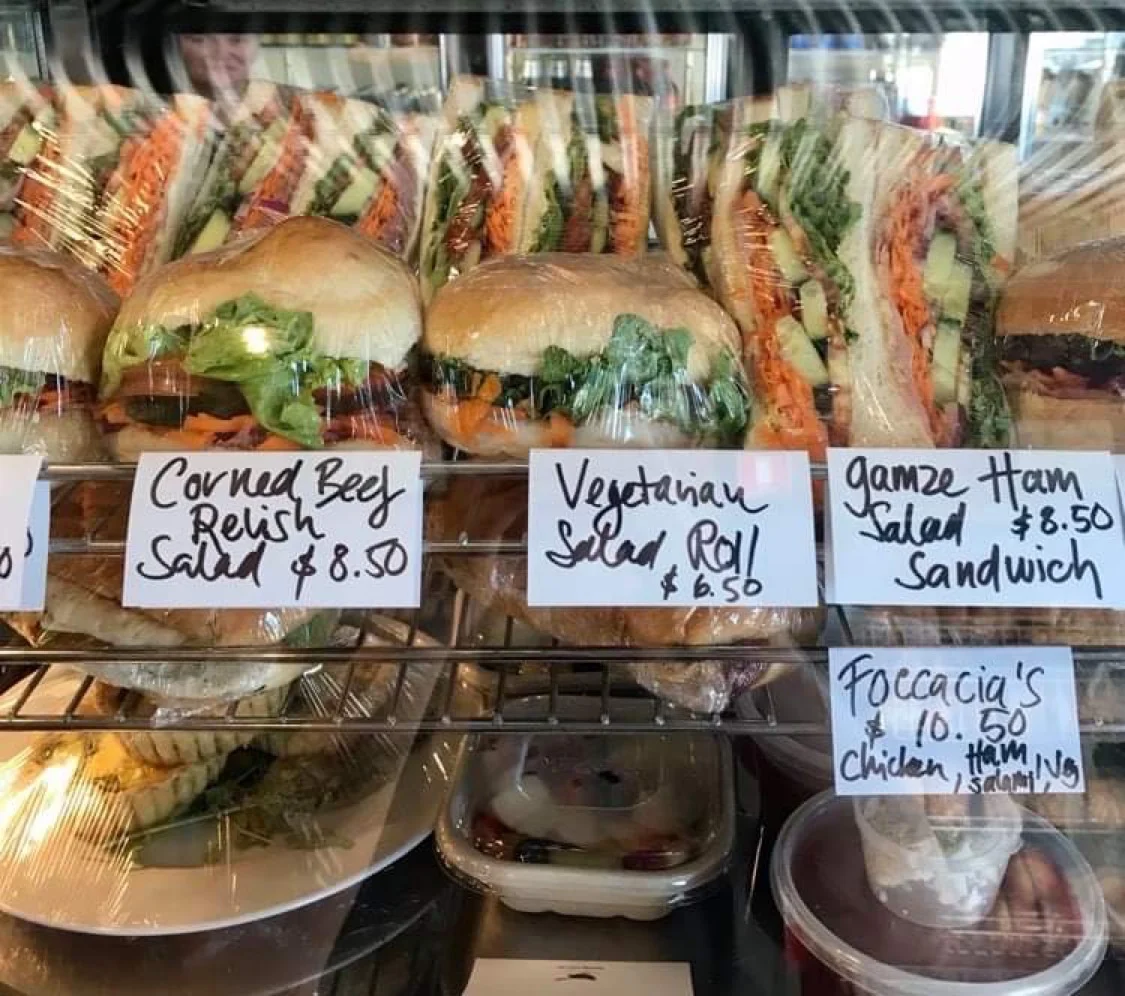 Corned Beef
Relish
Salad $8.50
Vegetarian
Salad Roll
$6.50
gamze Ham
Salad $8.50
Sandwich
Foccacia's
$10.50
Chicken, Ham
, salami, Veg